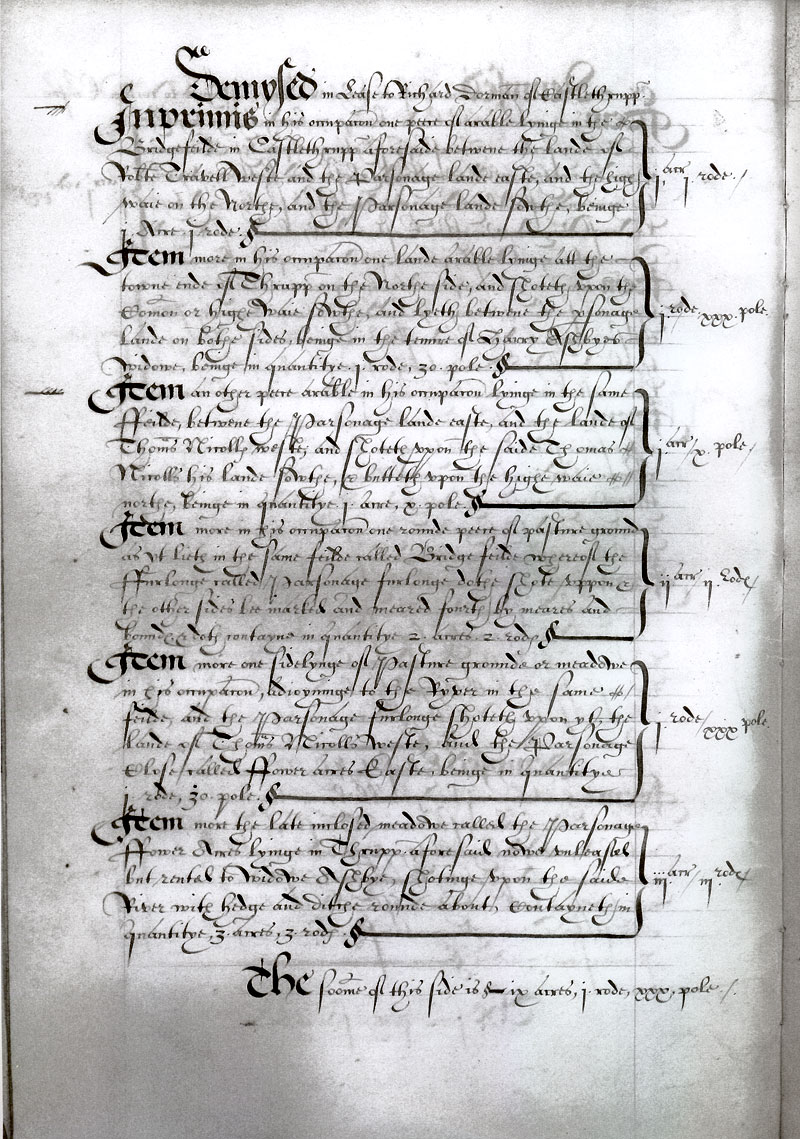 Demysed in Lease to Richard Dorman of Eastlethrupp
Inprimis in his occupacon one peece of arable lyinge in the
Bridgefeilde in Eastlethrupp aforesaide betwene the lande of
Robte Travell weste, and the Parsonage lande easte, and the high
waie on the Northe, and the Parsonage lande Sowthe, beinge
j. Acre, j. rode.
j. acr j. rode.
Item more in his occupacon one lande arable lyinge att the
towne ende of Thrupp on the Northe side, and shoteth vpon the
Comon or highe waie sowthe, and lyeth betwene the psonage
lande on bothe sides, beinge in the tenure of Harry Ashbyes
widowe, beinge in quantitye j. rode, 30. pole.
j. rode, xxx. pole.
Item an other peece arable in his occupacon lyinge in the same
ffeilde, betwene the Parsonage lande easte, and the lande of
Thoms Nicolls weste, and shoteth vpon the saide Thomas
Nicolls his lande sowthe, & butteth vpon the highe waie
northe, beinge in quantitye j. acre, x. pole.
j. acr x. pole
Item more in his occupacon one rounde peece of pasture ground
as yt lieth in the same feilde called Bridge feilde whereof the
ffurlonge called Parsonage furlonge dothe shote vppon &
the other sides bee marked and meared fourth by meares and
bound & doth contayne in quantitye 2. acres. 2. rod
ij acr ij. rod
Item more one sidelynge of Pasture grounde or meadowe
in his occupacon, adioyninge to the Ryver in the same
feilde, and the Parsonage furlonge shoteth vpon yt, the
lande of Thoms Nicolls weste, and the Parsonage
Close called ffower acres Easte, beinge in quantitye
j. rode, 30. pole.
j. rode xxx pole.
Item more the late inclosed meadowe called the Parsonage
ffower Acres lyinge in Thrupp aforesaid nowe vnleased
but rented to widowe Ashbye, shotinge vpon the saide
River with hedge and ditche rounde about, Contayneth in
quantitye, 3. acres, 3. rod
iij acr iij. rod
The soome of this side is ix acres, j. rode, xxx. pole.